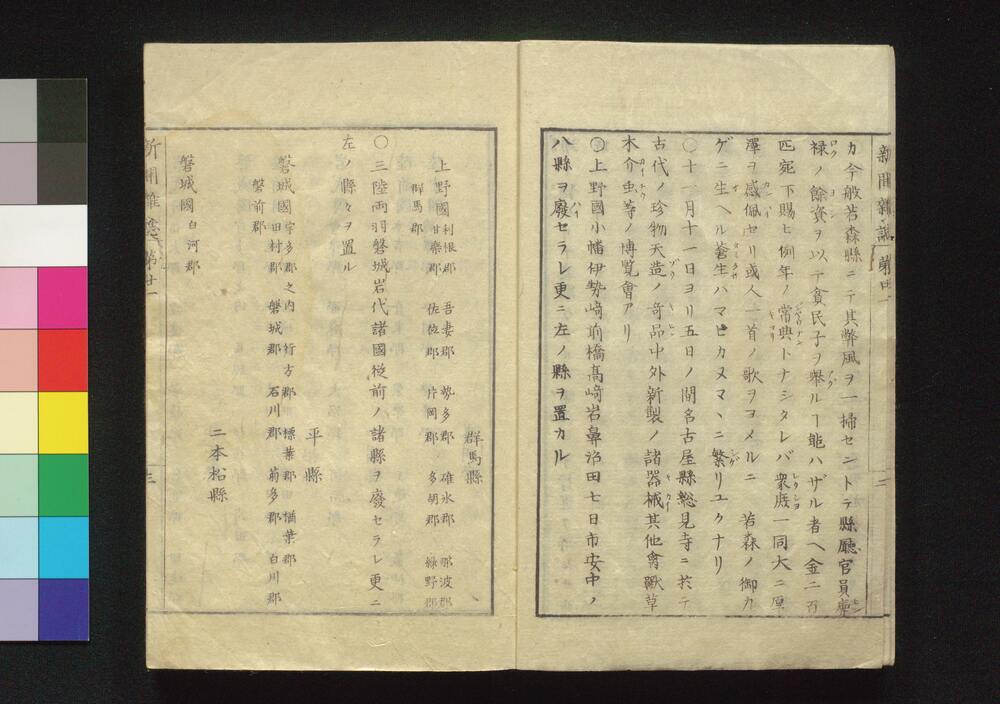 新聞雜誌 第廿一
二
カ今般若森縣ニテ其弊風ヲ一掃セントテ縣廳官員慶
禄ノ餘資ヲ以テ貧民子ヲ舉ルヿ能ハザル者ヘ金二百
匹宛下賜ヒ例年ノ常典トナシタレバ衆庶一同大ニ厚
澤ヲ感佩セリ或人一首ノ歌ヲヨメルニ 若森ノ御カ
ゲニ生ヘル蒼生ハマビカヌマヽニ繁リユクナリ
〇十一月十一日ヨリ五日ノ間名古屋縣総見寺ニ於テ
古代ノ珍物天造ノ奇品中外新製ノ諸器械其他禽獣草
木介虫等ノ博覧會アリ
〇上野國小幡伊勢﨑前橋髙﨑岩鼻沼田七日市安中ノ
八縣ヲ廢セラレ更ニ左ノ縣ヲ置カル
群馬縣
上野國 利根郡 吾妻郡 勢多郡 碓氷郡 那波郡
甘楽郡 佐位郡 片岡郡 多胡郡 緑野郡
群馬郡
〇三陸両羽磐城岩代諸國従前ノ諸縣ヲ廢セラレ更ニ
左ノ縣々ヲ置ル
平縣
磐城國 宇多郡之内 行方郡 標葉郡 楢葉郡
田村郡 磐城郡 石川郡 菊多郡 白川郡
磐前郡
二本松縣
磐城國 白河郡
新聞雜誌 第廿一
三